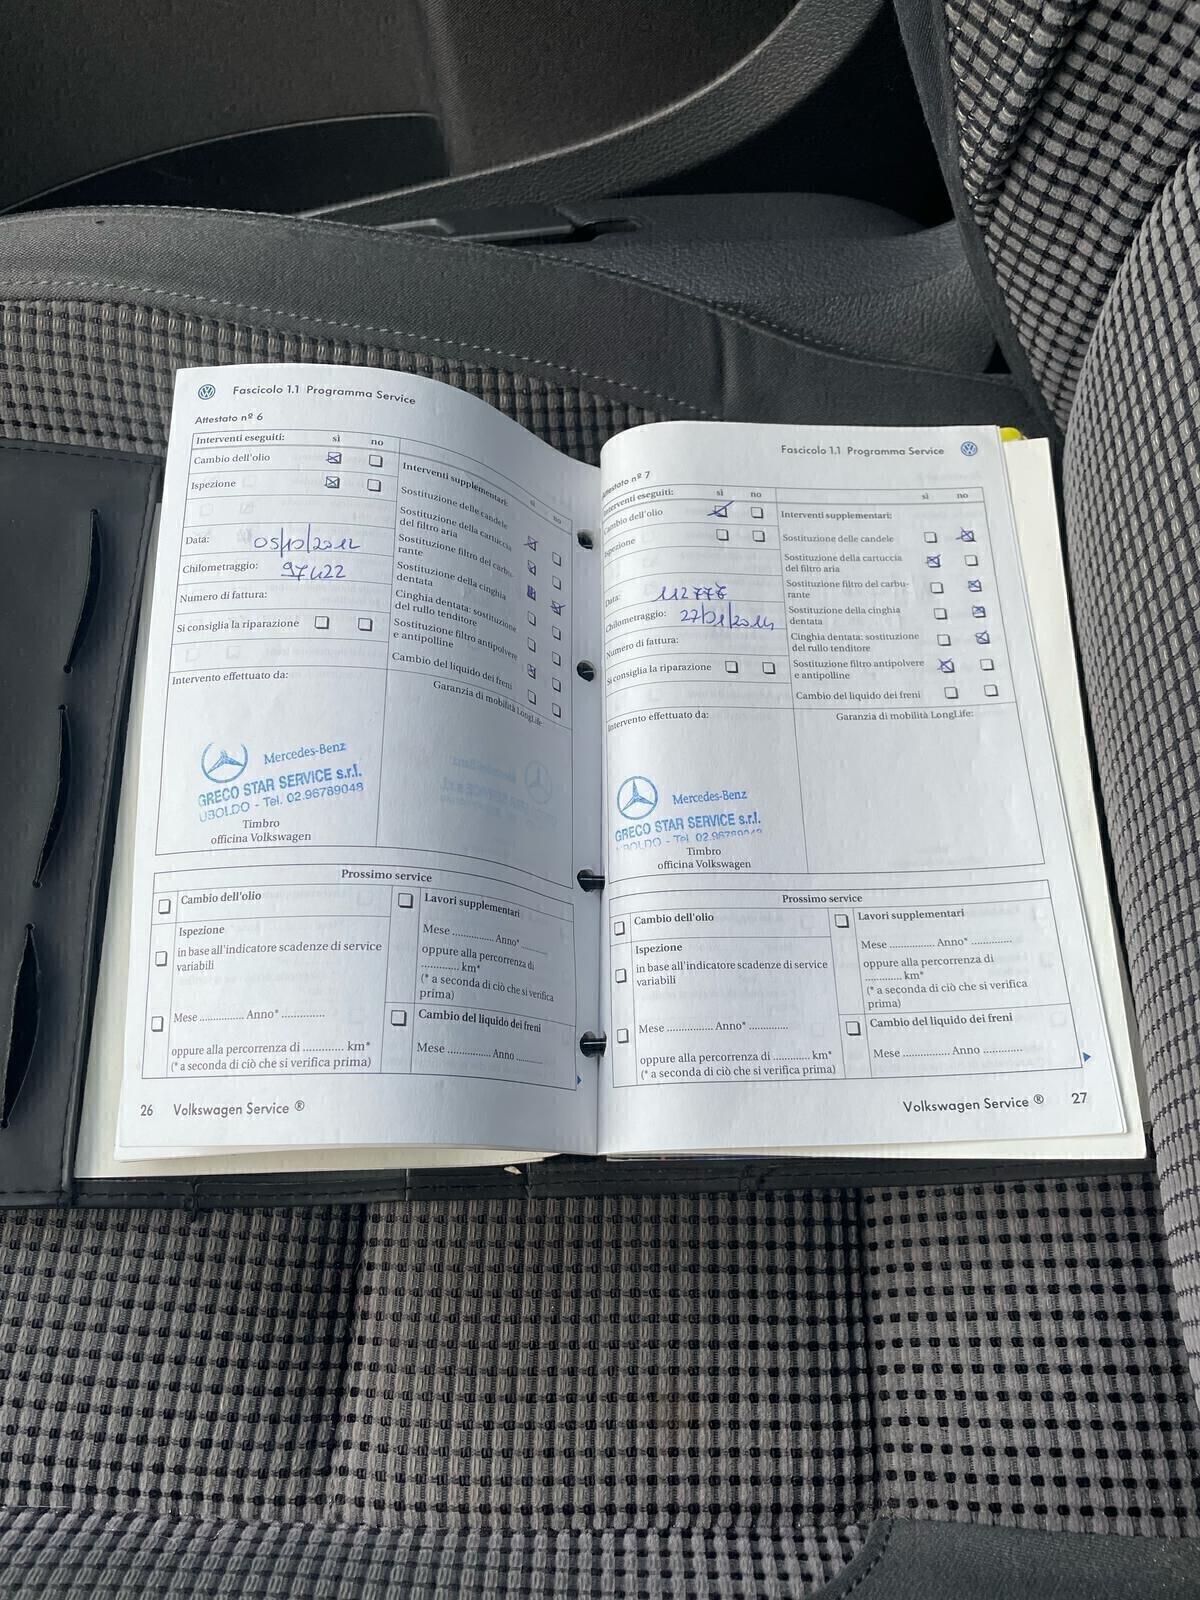 Fascicolo 1.1 Programma Service
Attestato nº 6
Interventi eseguiti: sì no
Cambio dell'olio
Ispezione
Data: 05/10/2012
Chilometraggio: 97422
Numero di fattura:
Si consiglia la riparazione
Interventi supplementari: sì no
Sostituzione delle candele
Sostituzione della cartuccia
del filtro aria
Sostituzione filtro del carbu-
rante
Sostituzione della cinghia
dentata
Cinghia dentata: sostituzione
del rullo tenditore
Sostituzione filtro antipolvere
e antipolline
Cambio del liquido dei freni
Intervento effettuato da:
Garanzia di mobilità LongLife:
Mercedes-Benz
GRECO STAR SERVICE s.r.l.
UBOLDO - Tel. 02.96789048
Timbro
officina Volkswagen
Prossimo service
Cambio dell'olio
Ispezione
in base all'indicatore scadenze di service
variabili
Mese ............... Anno* ...............
oppure alla percorrenza di ............ km*
(* a seconda di ciò che si verifica prima)
Lavori supplementari
Mese ............... Anno* ...............
oppure alla percorrenza di
............ km*
(* a seconda di ciò che si verifica
prima)
Cambio del liquido dei freni
Mese ............... Anno .........
26 Volkswagen Service ®
Fascicolo 1.1 Programma Service
Attestato nº 7
Interventi eseguiti: sì no
Cambio dell'olio
Ispezione
Data: 112776
Chilometraggio: 27/01/2014
Numero di fattura:
Si consiglia la riparazione
sì no
Interventi supplementari:
Sostituzione delle candele
Sostituzione della cartuccia
del filtro aria
Sostituzione filtro del carbu-
rante
Sostituzione della cinghia
dentata
Cinghia dentata: sostituzione
del rullo tenditore
Sostituzione filtro antipolvere
e antipolline
Cambio del liquido dei freni
Intervento effettuato da:
Garanzia di mobilità LongLife:
Mercedes-Benz
GRECO STAR SERVICE s.r.l.
UBOLDO - Tel.
Timbro
officina Volkswagen
Prossimo service
Cambio dell'olio
Ispezione
in base all'indicatore scadenze di service
variabili
Mese ............... Anno* ............
oppure alla percorrenza di ............ km*
(* a seconda di ciò che si verifica prima)
Lavori supplementari
Mese ............... Anno* ............
oppure alla percorrenza di
............ km*
(* a seconda di ciò che si verifica
prima)
Cambio del liquido dei freni
Mese ............... Anno ............
Volkswagen Service ® 27